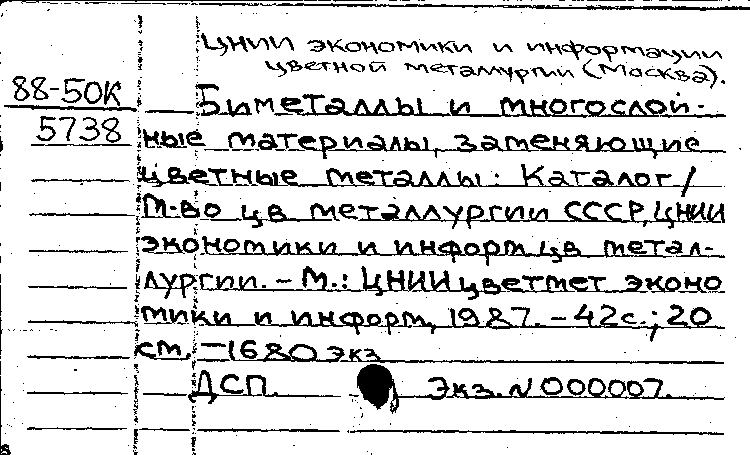 ЦНИИ экономики и информации
цветной металлургии (Москва).
88-50К
Биметаллы и многослой-
5738
ные материалы, заменяющие
цветные металлы: Каталог /
М-во цв металлургии СССР, ЦНИИ
экономики и информ. цв метал-
лургии. – М.: ЦНИИцветмет эконо
мики и информ, 1987. – 42с.; 20
см. – 1680 экз
ДСП. Экз. N 000007.